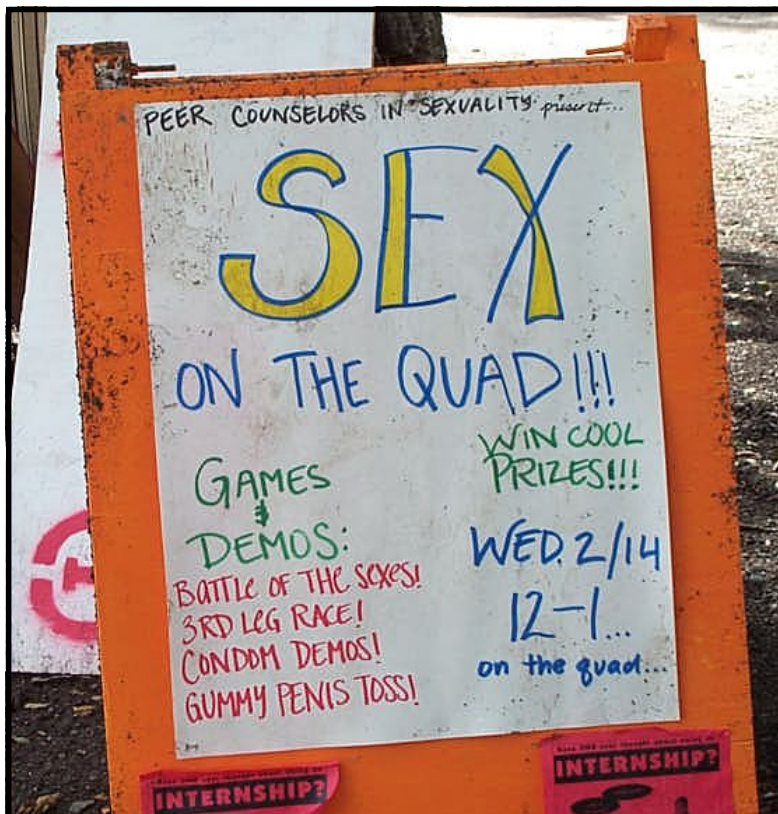 PEER COUNSELORS IN SEXUALITY present...
SEX
ON THE QUAD!!!
GAMES
&
DEMOS:
BATTLE OF THE SEXES!
3RD LEG RACE!
CONDOM DEMOS!
GUMMY PENIS TOSS!
WIN COOL
PRIZES!!!
WED. 2/14
12-1...
on the quad...
INTERNSHIP?
INTERNSHIP?